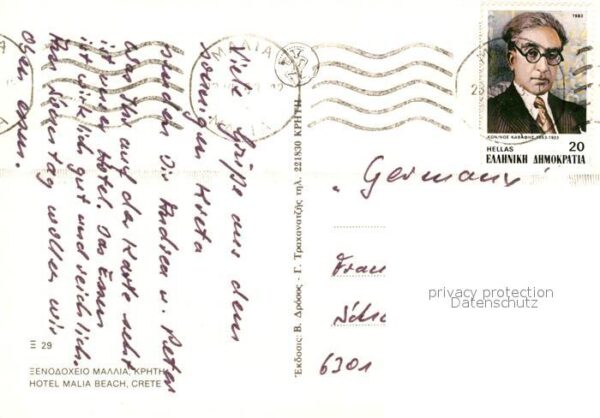 Viele Grüße aus dem
sonnigen Kreta
senden Di Andrea u. Peter
was Ihr auf der Karte seht
ist unser Hotel. Das Essen
ist wirklich gut und reichlich.
Am Donnerstag wollen wir
ΜΑΛΙΑ
1983
ΚΩΝ/ΝΟΣ ΚΑΒΑΦΗΣ 1863-1933
HELLAS 20
ΕΛΛΗΝΙΚΗ ΔΗΜΟΚΡΑΤΙΑ
Germany
Frau
6301
privacy protection
Datenschutz
Εκδοσις: Β. Δρόσος - Γ. Τραχανατζής τηλ. 221830 ΚΡΗΤΗ
Ξ 29
ΞΕΝΟΔΟΧΕΙΟ ΜΑΛΛΙΑ, ΚΡΗΤΗ
HOTEL MALIA BEACH, CRETE